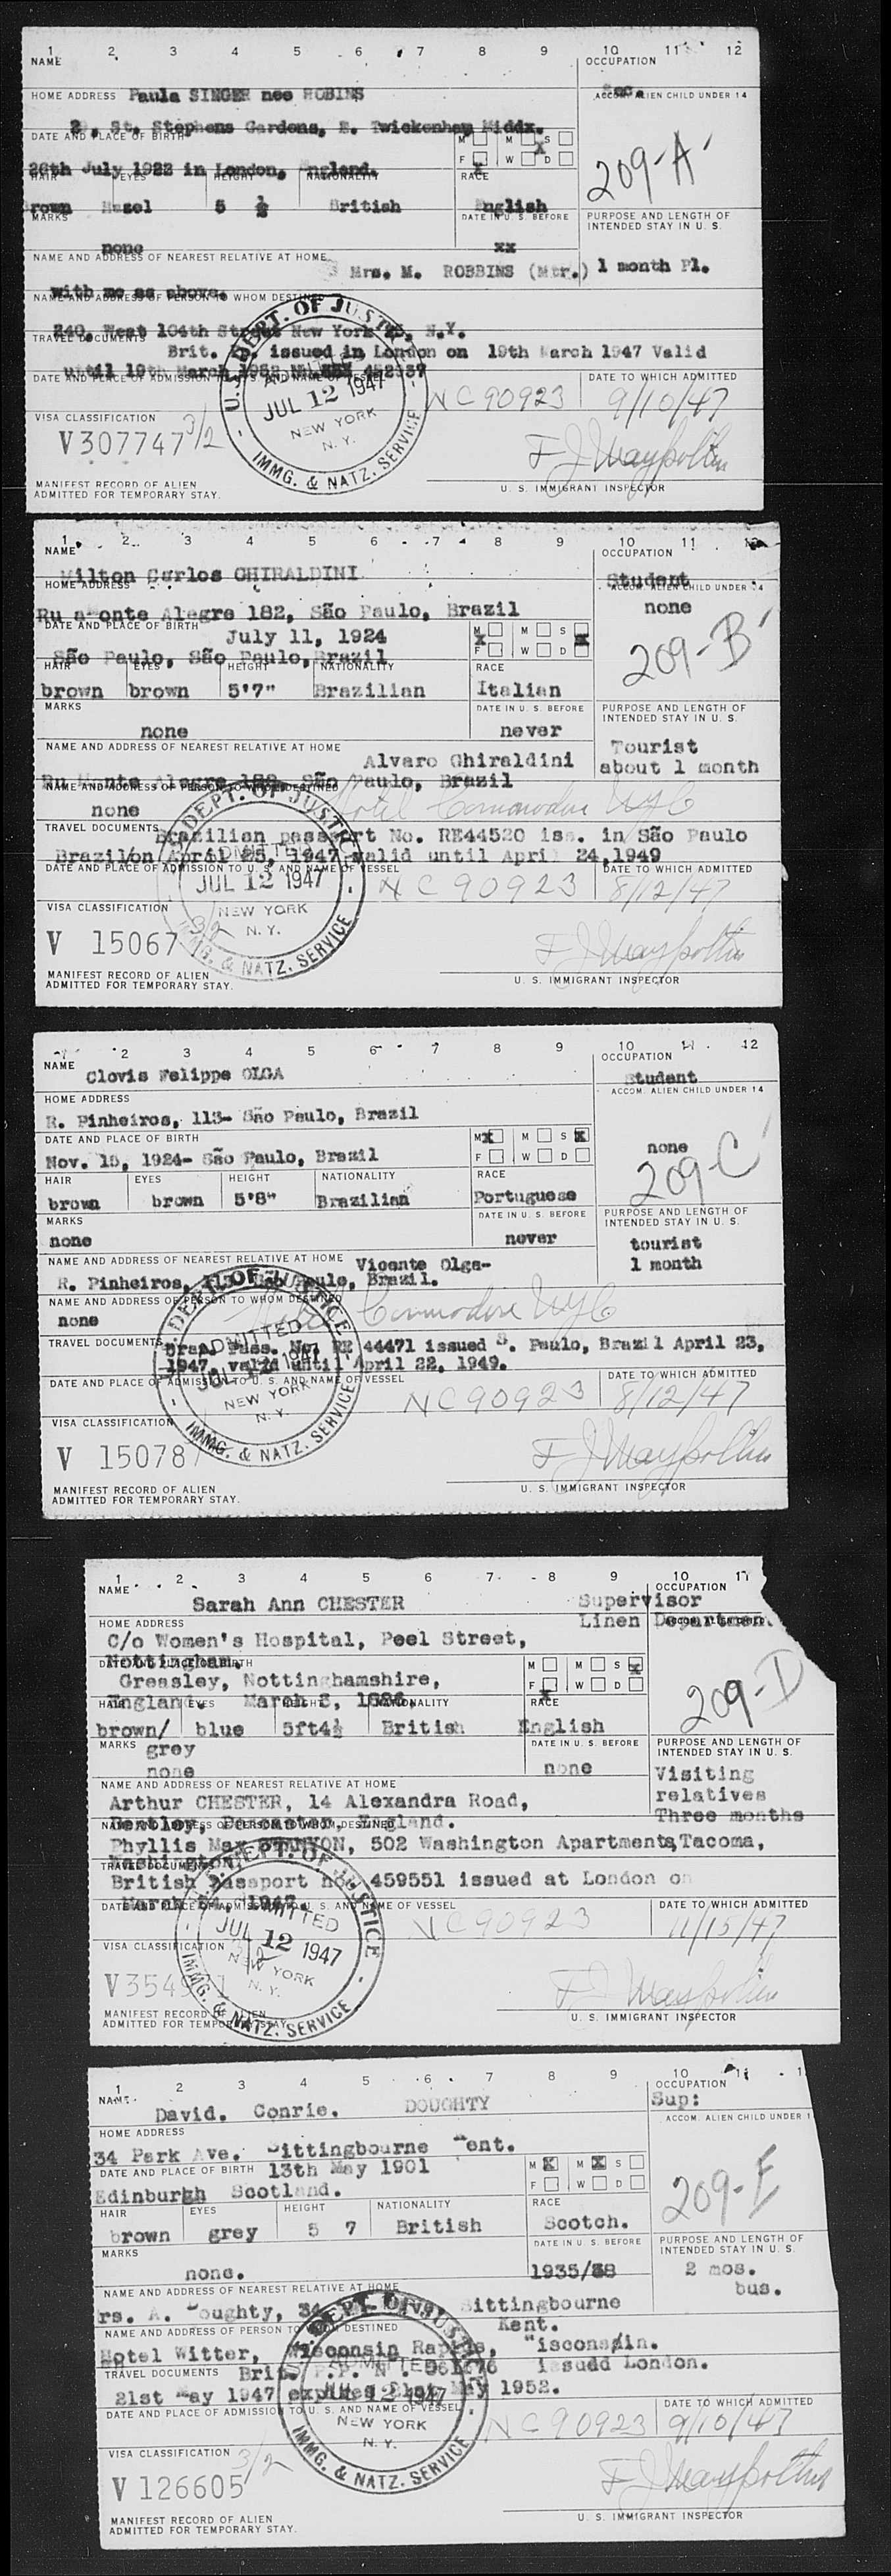 1 2 3 4 5 6 7 8 9 10 11 12
NAME OCCUPATION
HOME ADDRESS Paula SINGER nee ROBINS Sec. ACCOM. ALIEN CHILD UNDER 14
St. Stephens Gardens, E. Twickenham Middx.
DATE AND PLACE OF BIRTH M M S
26th July 1922 in London, England. F X W X D
209-A
HAIR EYES HEIGHT NATIONALITY RACE
rown Hazel 5 ½ British English
MARKS DATE IN U. S. BEFORE PURPOSE AND LENGTH OF
INTENDED STAY IN U. S.
none xx
NAME AND ADDRESS OF NEAREST RELATIVE AT HOME
Mrs. M. ROBBINS (Mtr.) 1 month Pl.
with me as above.
NAME AND ADDRESS OF PERSON TO WHOM DESTINED
240, West 104th Street New York 25, N.Y.
TRAVEL DOCUMENTS
Brit. issued in London on 19th March 1947 Valid
until 19th March 1952
DATE AND PLACE OF ADMISSION TO U. S. AND NAME OF VESSEL DATE TO WHICH ADMITTED
NC 90923 9/10/47
U. S. DEPT. OF JUSTICE
ADMITTED
JUL 12 1947
NEW YORK
N. Y.
IMMG. & NATZ. SERVICE
VISA CLASSIFICATION
V307747 3/2
MANIFEST RECORD OF ALIEN
ADMITTED FOR TEMPORARY STAY.
U. S. IMMIGRANT INSPECTOR
1 2 3 4 5 6 7 8 9 10 11 12
NAME OCCUPATION
Milton Carlos GHIRALDINI Student
HOME ADDRESS ACCOM. ALIEN CHILD UNDER 14
Ru a onte Alegre 182, São Paulo, Brazil none
DATE AND PLACE OF BIRTH July 11, 1924 M X M S X
São Paulo, São Paulo, Brazil F W D
209-B
HAIR EYES HEIGHT NATIONALITY RACE
brown brown 5'7" Brazilian Italian
MARKS DATE IN U. S. BEFORE PURPOSE AND LENGTH OF
INTENDED STAY IN U. S.
none never
NAME AND ADDRESS OF NEAREST RELATIVE AT HOME Tourist
Alvaro Ghiraldini about 1 month
Ru Monte Alegre 182, São Paulo, Brazil
NAME AND ADDRESS OF PERSON TO WHOM DESTINED
none Hotel Commodore NYC
TRAVEL DOCUMENTS
Brazilian passport No. RE44520 iss. in São Paulo
Brazil on April 25, 1947 valid until April 24, 1949
DATE AND PLACE OF ADMISSION TO U. S. AND NAME OF VESSEL DATE TO WHICH ADMITTED
NC 90923 8/12/47
U. S. DEPT. OF JUSTICE
ADMITTED
JUL 12 1947
NEW YORK
N. Y.
IMMG. & NATZ. SERVICE
VISA CLASSIFICATION
V 15067 3/2
MANIFEST RECORD OF ALIEN
ADMITTED FOR TEMPORARY STAY.
U. S. IMMIGRANT INSPECTOR
2 3 4 5 6 7 8 9 10 11 12
NAME OCCUPATION
Clovis Felippe OLGA Student
HOME ADDRESS ACCOM. ALIEN CHILD UNDER 14
R. Pinheiros, 113- São Paulo, Brazil
DATE AND PLACE OF BIRTH M X M S X
none
Nov. 15, 1924- São Paulo, Brazil F W D
209-C
HAIR EYES HEIGHT NATIONALITY RACE
brown brown 5'8" Brazilian Portuguese
MARKS DATE IN U. S. BEFORE PURPOSE AND LENGTH OF
INTENDED STAY IN U. S.
none never tourist
NAME AND ADDRESS OF NEAREST RELATIVE AT HOME Vicente Olga- 1 month
R. Pinheiros, 113- São Paulo, Brazil.
NAME AND ADDRESS OF PERSON TO WHOM DESTINED
none Hotel Commodore NYC
TRAVEL DOCUMENTS Braz. Pass. No. RE 44471 issued S. Paulo, Brazil April 23,
1947, valid until April 22, 1949.
DATE AND PLACE OF ADMISSION TO U. S. AND NAME OF VESSEL DATE TO WHICH ADMITTED
NC 90923 8/12/47
U. S. DEPT. OF JUSTICE
ADMITTED
JUL 12 1947
NEW YORK
N. Y.
IMMG. & NATZ. SERVICE
VISA CLASSIFICATION
V 15078
MANIFEST RECORD OF ALIEN
ADMITTED FOR TEMPORARY STAY.
U. S. IMMIGRANT INSPECTOR
1 2 3 4 5 6 7 8 9 10 11
NAME OCCUPATION
Sarah Ann CHESTER Supervisor
HOME ADDRESS Linen Department
C/o Women's Hospital, Peel Street,
Nottingham,
DATE AND PLACE OF BIRTH
Greasley, Nottinghamshire, M M S X
England. March 8, F X W D
209-D
HAIR EYES HEIGHT NATIONALITY RACE
brown/ blue 5ft4½ British English
MARKS grey DATE IN U. S. BEFORE PURPOSE AND LENGTH OF
INTENDED STAY IN U. S.
none none Visiting
NAME AND ADDRESS OF NEAREST RELATIVE AT HOME relatives
Arthur CHESTER, 14 Alexandra Road, Three months
Bentley, Doncaster, England.
NAME AND ADDRESS OF PERSON TO WHOM DESTINED
Phyllis May STANYON, 502 Washington Apartments, Tacoma,
Washington.
TRAVEL DOCUMENTS
British Passport no. 459551 issued at London on
March 1947
DATE AND PLACE OF ADMISSION TO U. S. AND NAME OF VESSEL DATE TO WHICH ADMITTED
NC 90923 11/15/47
U. S. DEPT. OF JUSTICE
ADMITTED
JUL 12 1947
NEW YORK
N. Y.
IMMG. & NATZ. SERVICE
VISA CLASSIFICATION 3/2
MANIFEST RECORD OF ALIEN
ADMITTED FOR TEMPORARY STAY.
U. S. IMMIGRANT INSPECTOR
1 2 3 4 5 6 7 8 9 10 11
NAME OCCUPATION
David. Conrie. DOUGHTY Sup:
HOME ADDRESS ACCOM. ALIEN CHILD UNDER 1
34 Park Ave. Sittingbourne Kent.
DATE AND PLACE OF BIRTH 13th May 1901 M X M X S
Edinburgh Scotland. F W D
209-E
HAIR EYES HEIGHT NATIONALITY RACE
brown grey 5 7 British Scotch.
MARKS DATE IN U. S. BEFORE PURPOSE AND LENGTH OF
INTENDED STAY IN U. S.
none. 1935/38 2 mos.
NAME AND ADDRESS OF NEAREST RELATIVE AT HOME bus.
rs. A. Doughty, 34 Sittingbourne
NAME AND ADDRESS OF PERSON TO WHOM DESTINED Kent.
Hotel Witter, Wisconsin Rapids, Wisconsin.
TRAVEL DOCUMENTS Brit. P.P. issudd London.
21st May 1947 expires 21st May 1952.
DATE AND PLACE OF ADMISSION TO U. S. AND NAME OF VESSEL DATE TO WHICH ADMITTED
NC 90923 9/10/47
U. S. DEPT. OF JUSTICE
ADMITTED
JUL 12 1947
NEW YORK
N. Y.
IMMG. & NATZ. SERVICE
VISA CLASSIFICATION
V 126605 3/2
MANIFEST RECORD OF ALIEN
ADMITTED FOR TEMPORARY STAY.
U. S. IMMIGRANT INSPECTOR